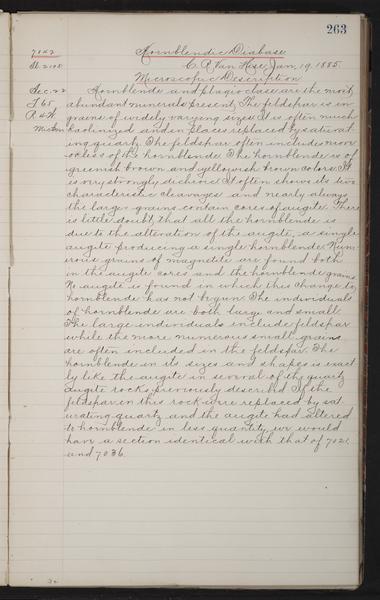 263
7022
Hornblendic Diabase.
Sl. 2108
C. R. Van Hise, Jan. 19, 1885.
Microscopic Description
Sec. 22
Hornblende and plagioclase are the most
T 65
abundant minerals present. The feldspar is in
R 4 W
grains of widely varying sizes. It is often much
kaolinized and in places replaced by saturat
ing quartz. The feldspar often includes more
or less of the hornblende. The hornblende is of
greenish brown and yellowish brown colors. It
is very strongly dichroic. It often shows its two
characteristic cleavages and nearly always
the large grains contain cores of augite. There
is little doubt that all the hornblende is
due to the alteration of the augite, a single
augite producing a single hornblende. Num-
erous grains of magnetite are found both
in the augite cores and the hornblende grains.
No augite is found in which this change to
hornblende has not begun. The individuals
of hornblende are both large and small.
The large individuals include feldspar
while the more numerous small grains
are often included in the feldspar. The
hornblende in its sizes and shapes is exact
ly like the augite in several of the quartz
augite rocks previously described. If the
feldspar in this rock were replaced by sat
urating quartz and the augite had altered
to hornblende in less quantity, we would
have a section identical with that of 7021
and 7036.